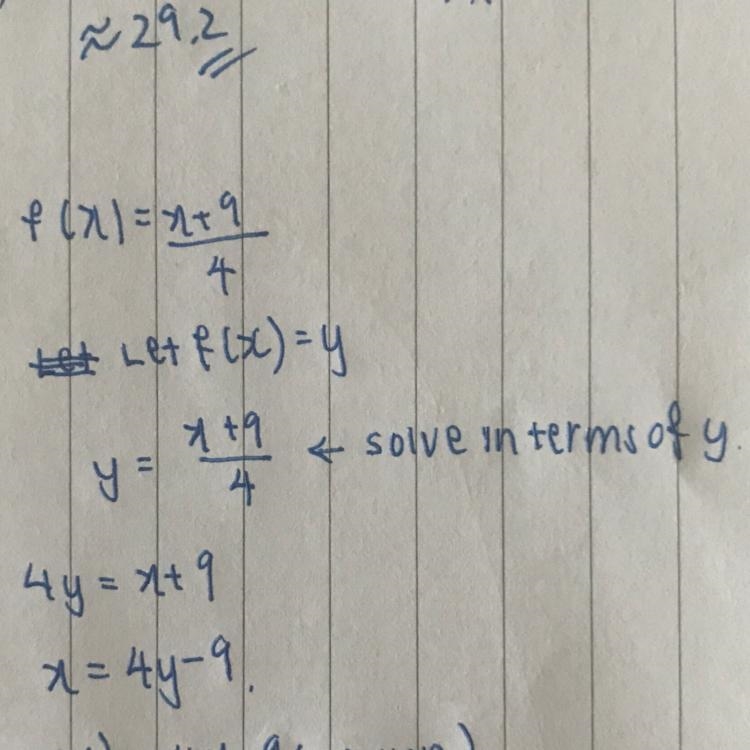 ≈29.2
f(x) = x+9/4
Let f(x) = y
y = x+9/4 ← solve in terms of y.
4y = x+9
x = 4y-9.